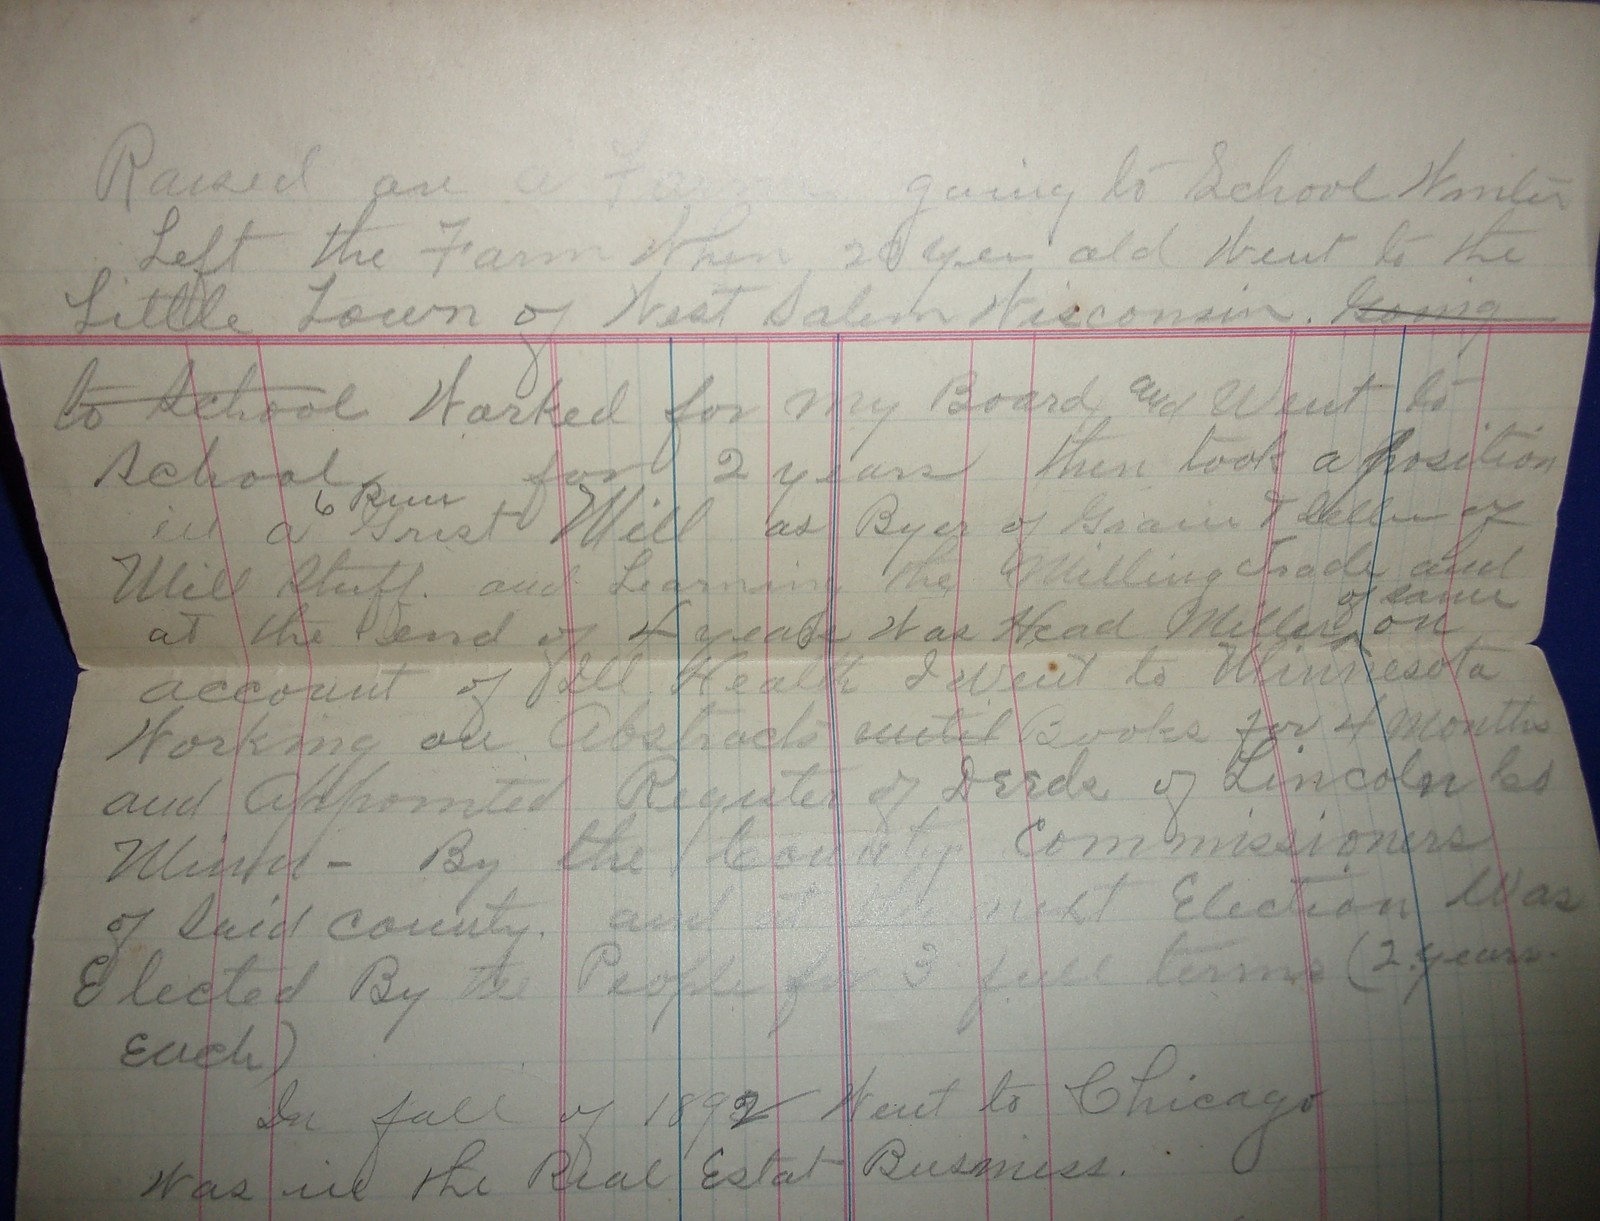 Raised on a Farm going to School Winter
Left the Farm When 20 yer old Went to the
Little Town of West Salem Wisconsin. Going
to School Worked for my Board and Went to
School for 2 years then took a position
in a 6 Run Grist Mill as Byer of Grain & Seller of
Mill Stuff. and Learning the Milling Trade and
at the end of 4 years Was Head Miller of same on
account of Ill Health I Went to Minnesota
Working on Abstracts until Books for 4 Months
and Appointed Register of Deeds of Lincoln Co
Minn - By the County Commissioners
of Said County. and at the next Election Was
Elected By the People for 3 full terms (2 years.
Each)
In fall of 1892 Went to Chicago
Was in the Real Estat Business.